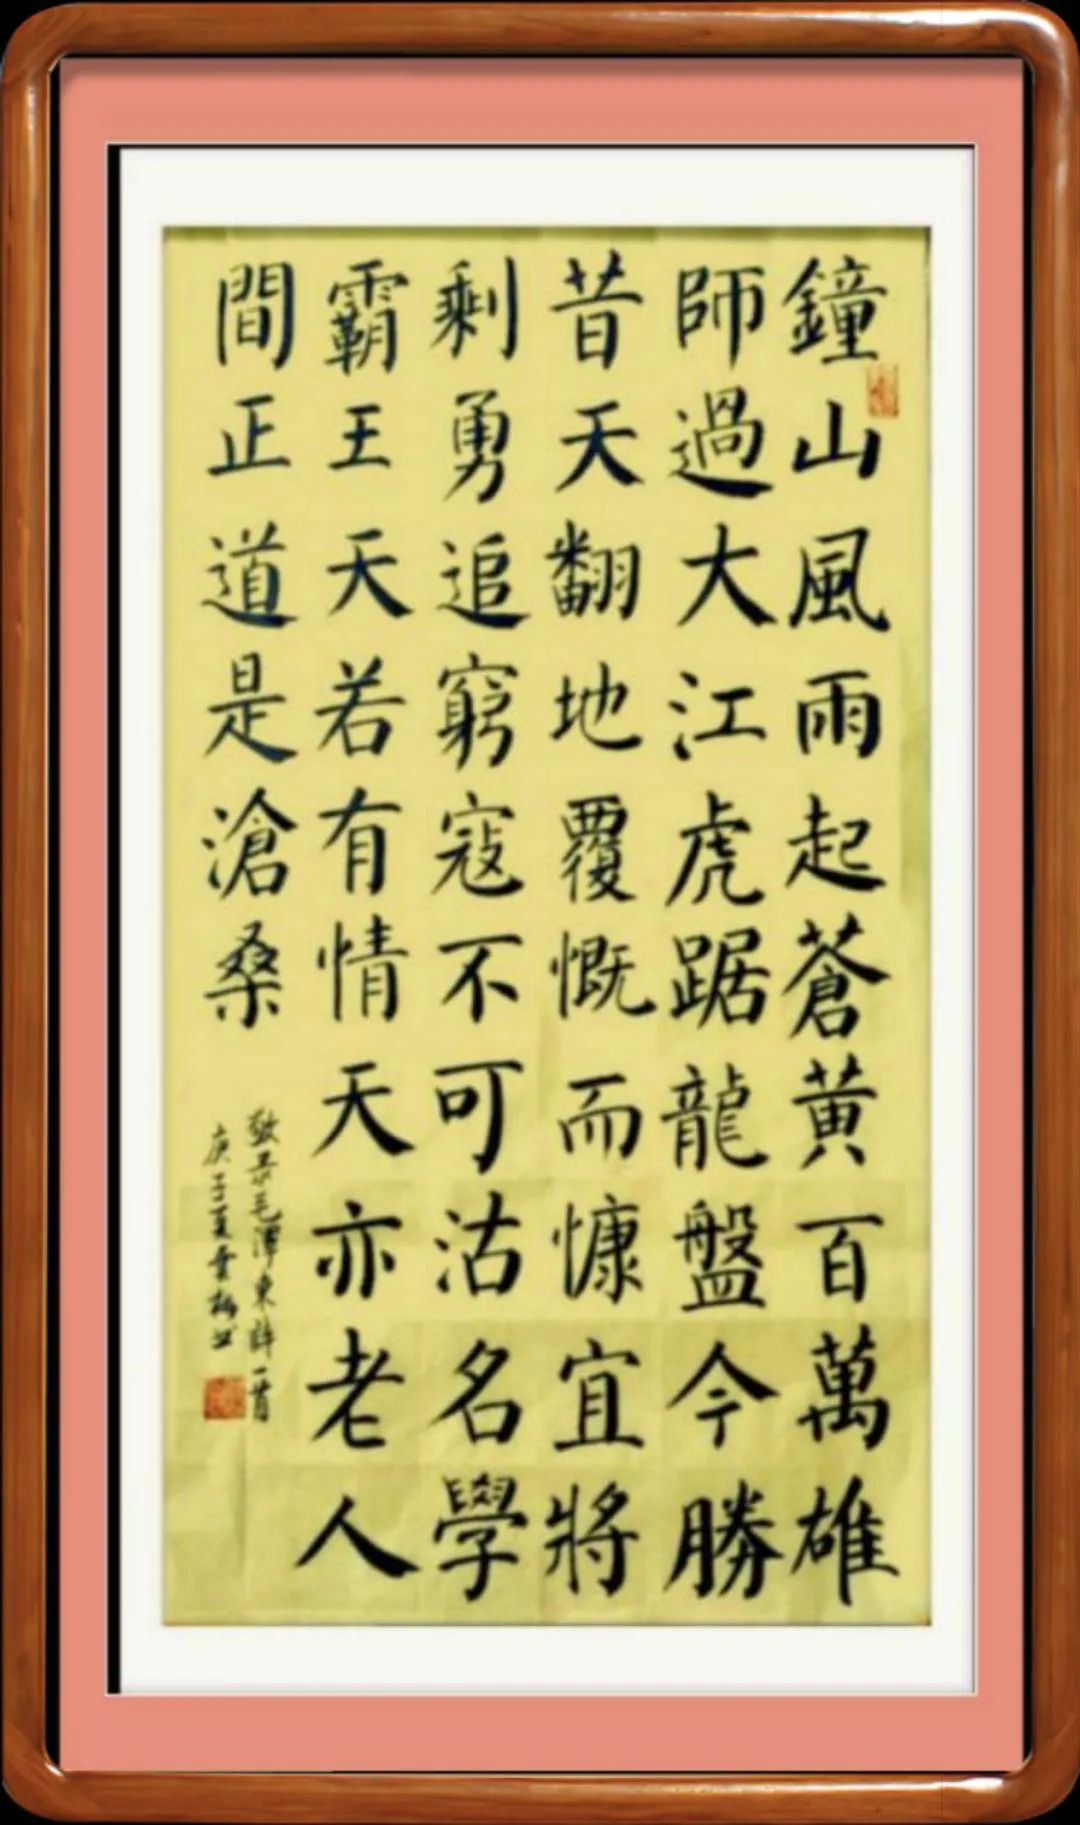 鐘山風雨起蒼黃百萬雄
師過大江虎踞龍盤今勝
昔天翻地覆慨而慷宜將
剩勇追窮寇不可沽名學
霸王天若有情天亦老人
間正道是滄桑
敬录毛澤東詩一首
庚子夏